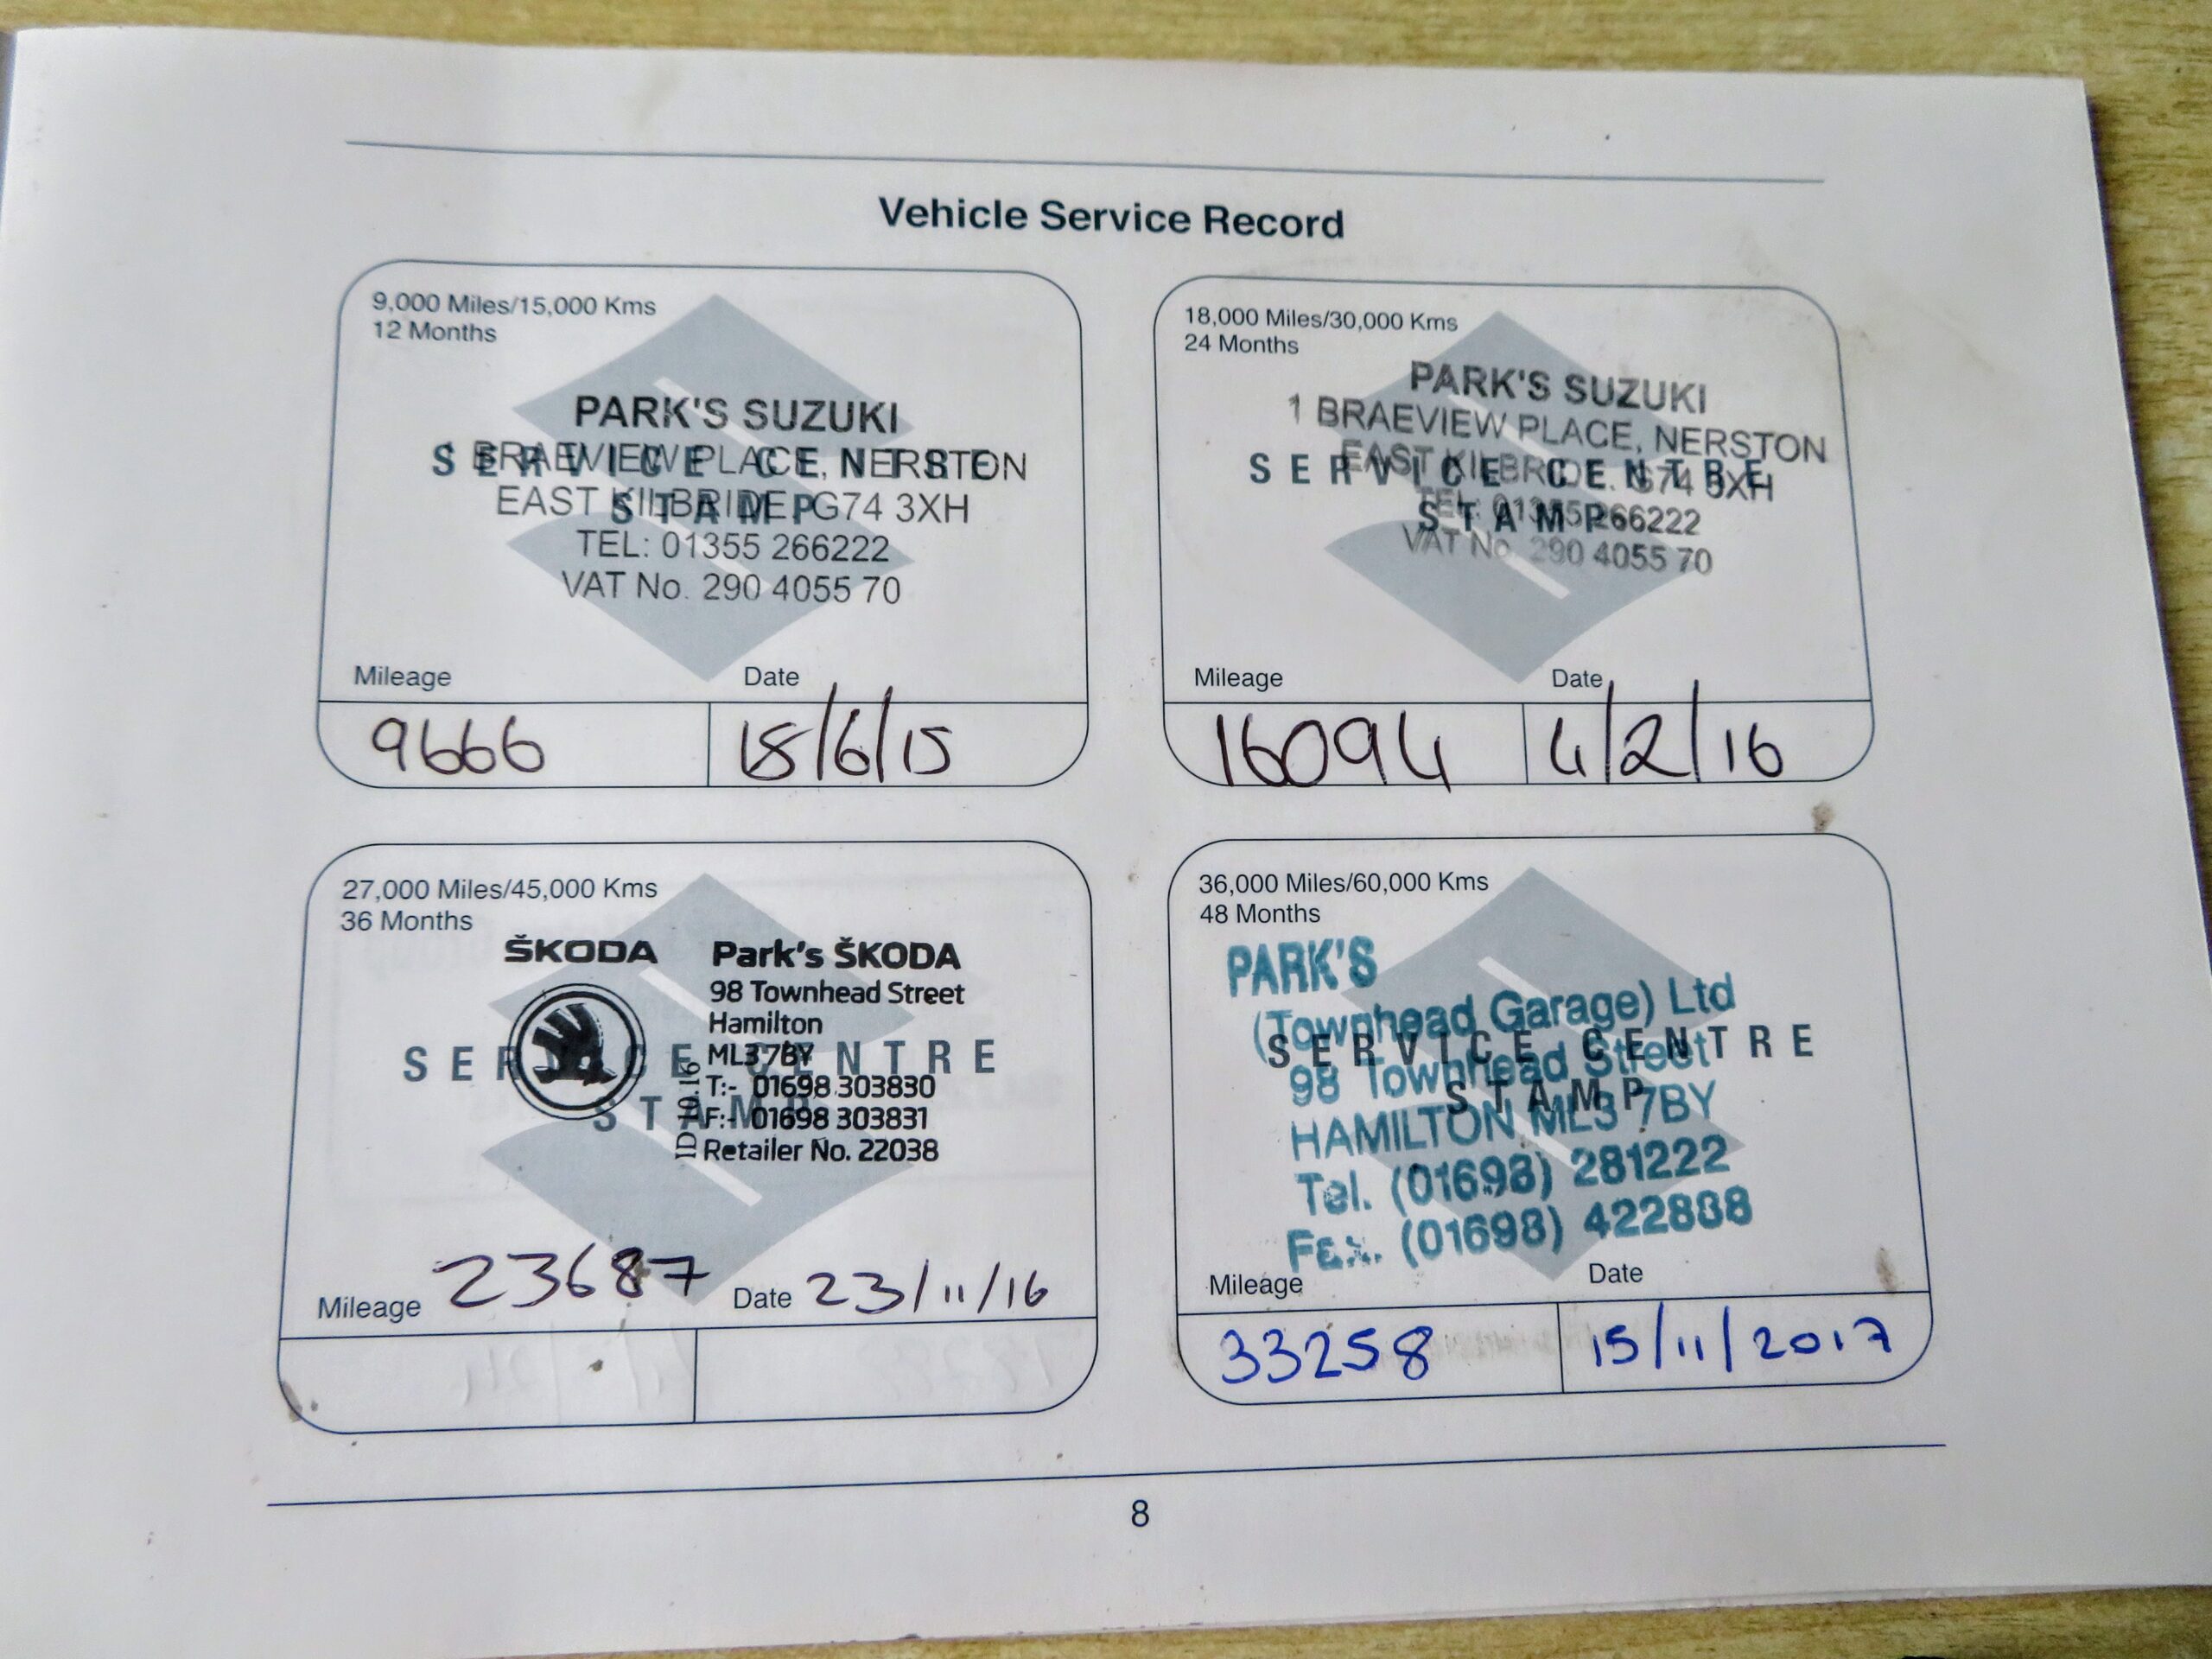 Vehicle Service Record
9,000 Miles/15,000 Kms
12 Months
PARK'S SUZUKI
1 BRAEVIEW PLACE, NERSTON
SERVICE CENTRE
EAST KILBRIDE. G74 3XH
STAMP
TEL: 01355 266222
VAT No. 290 4055 70
Mileage Date
9666 18/6/15
18,000 Miles/30,000 Kms
24 Months
PARK'S SUZUKI
1 BRAEVIEW PLACE, NERSTON
EAST KILBRIDE. G74 3XH
SERVICE CENTRE
TEL: 01355 266222
STAMP
VAT No. 290 4055 70
Mileage Date
16094 4/2/16
27,000 Miles/45,000 Kms
36 Months
ŠKODA
Park's ŠKODA
98 Townhead Street
Hamilton
ML3 7BY
SERVICE CENTRE
T:- 01698 303830
STAMP
F:- 01698 303831
Retailer No. 22038
ID 10.16
Mileage 23687 Date 23/11/16
36,000 Miles/60,000 Kms
48 Months
PARK'S
(Townhead Garage) Ltd
SERVICE CENTRE
98 Townhead Street
STAMP
HAMILTON ML3 7BY
Tel. (01698) 281222
Fax. (01698) 422888
Mileage Date
33258 15/11/2017
8